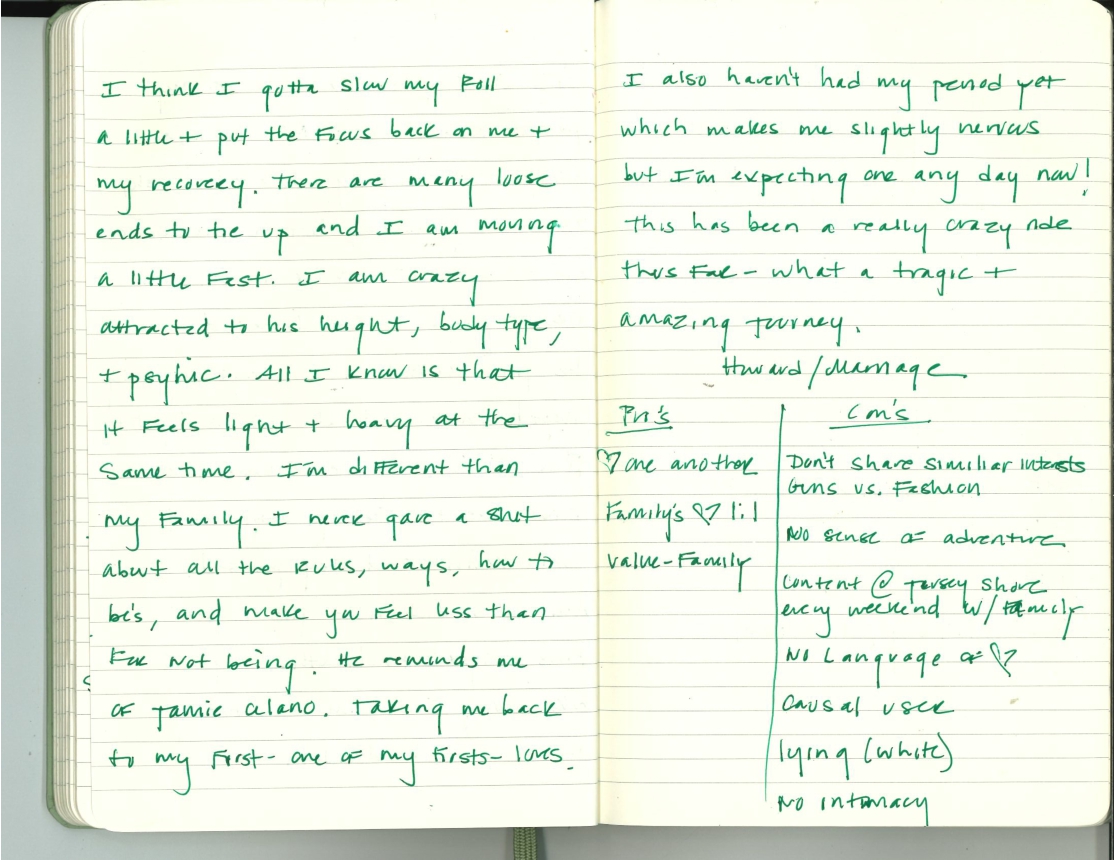 I think I gotta slow my Roll
a little + put the Focus back on me +
my recovery. There are many loose
ends to tie up and I am moving
a little Fast. I am crazy
attracted to his height, body type,
+ psyhic. All I know is that
it Feels light + heavy at the
Same time. I'm different than
my Family. I never gave a shit
about all the Rules, ways, how to
be's, and make you Feel less than
For Not being. He reminds me
of Jamie alano. Taking me back
to my First - one of my Firsts - loves.
I also haven't had my period yet
which makes me slightly nervous
but I'm expecting one any day now!
This has been a really crazy ride
thus Far - what a tragic +
amazing Journey.
Howard / Marriage
Pro's
♡ one another
Family's ♡ lil
value - Family
Con's
Don't share similiar intersts
Guns vs. Fashion
No sense of adventure
Content @ Jersey Shore
every weekend w/ Family
No Language of ♡
Causal user
lying (white)
No intimacy